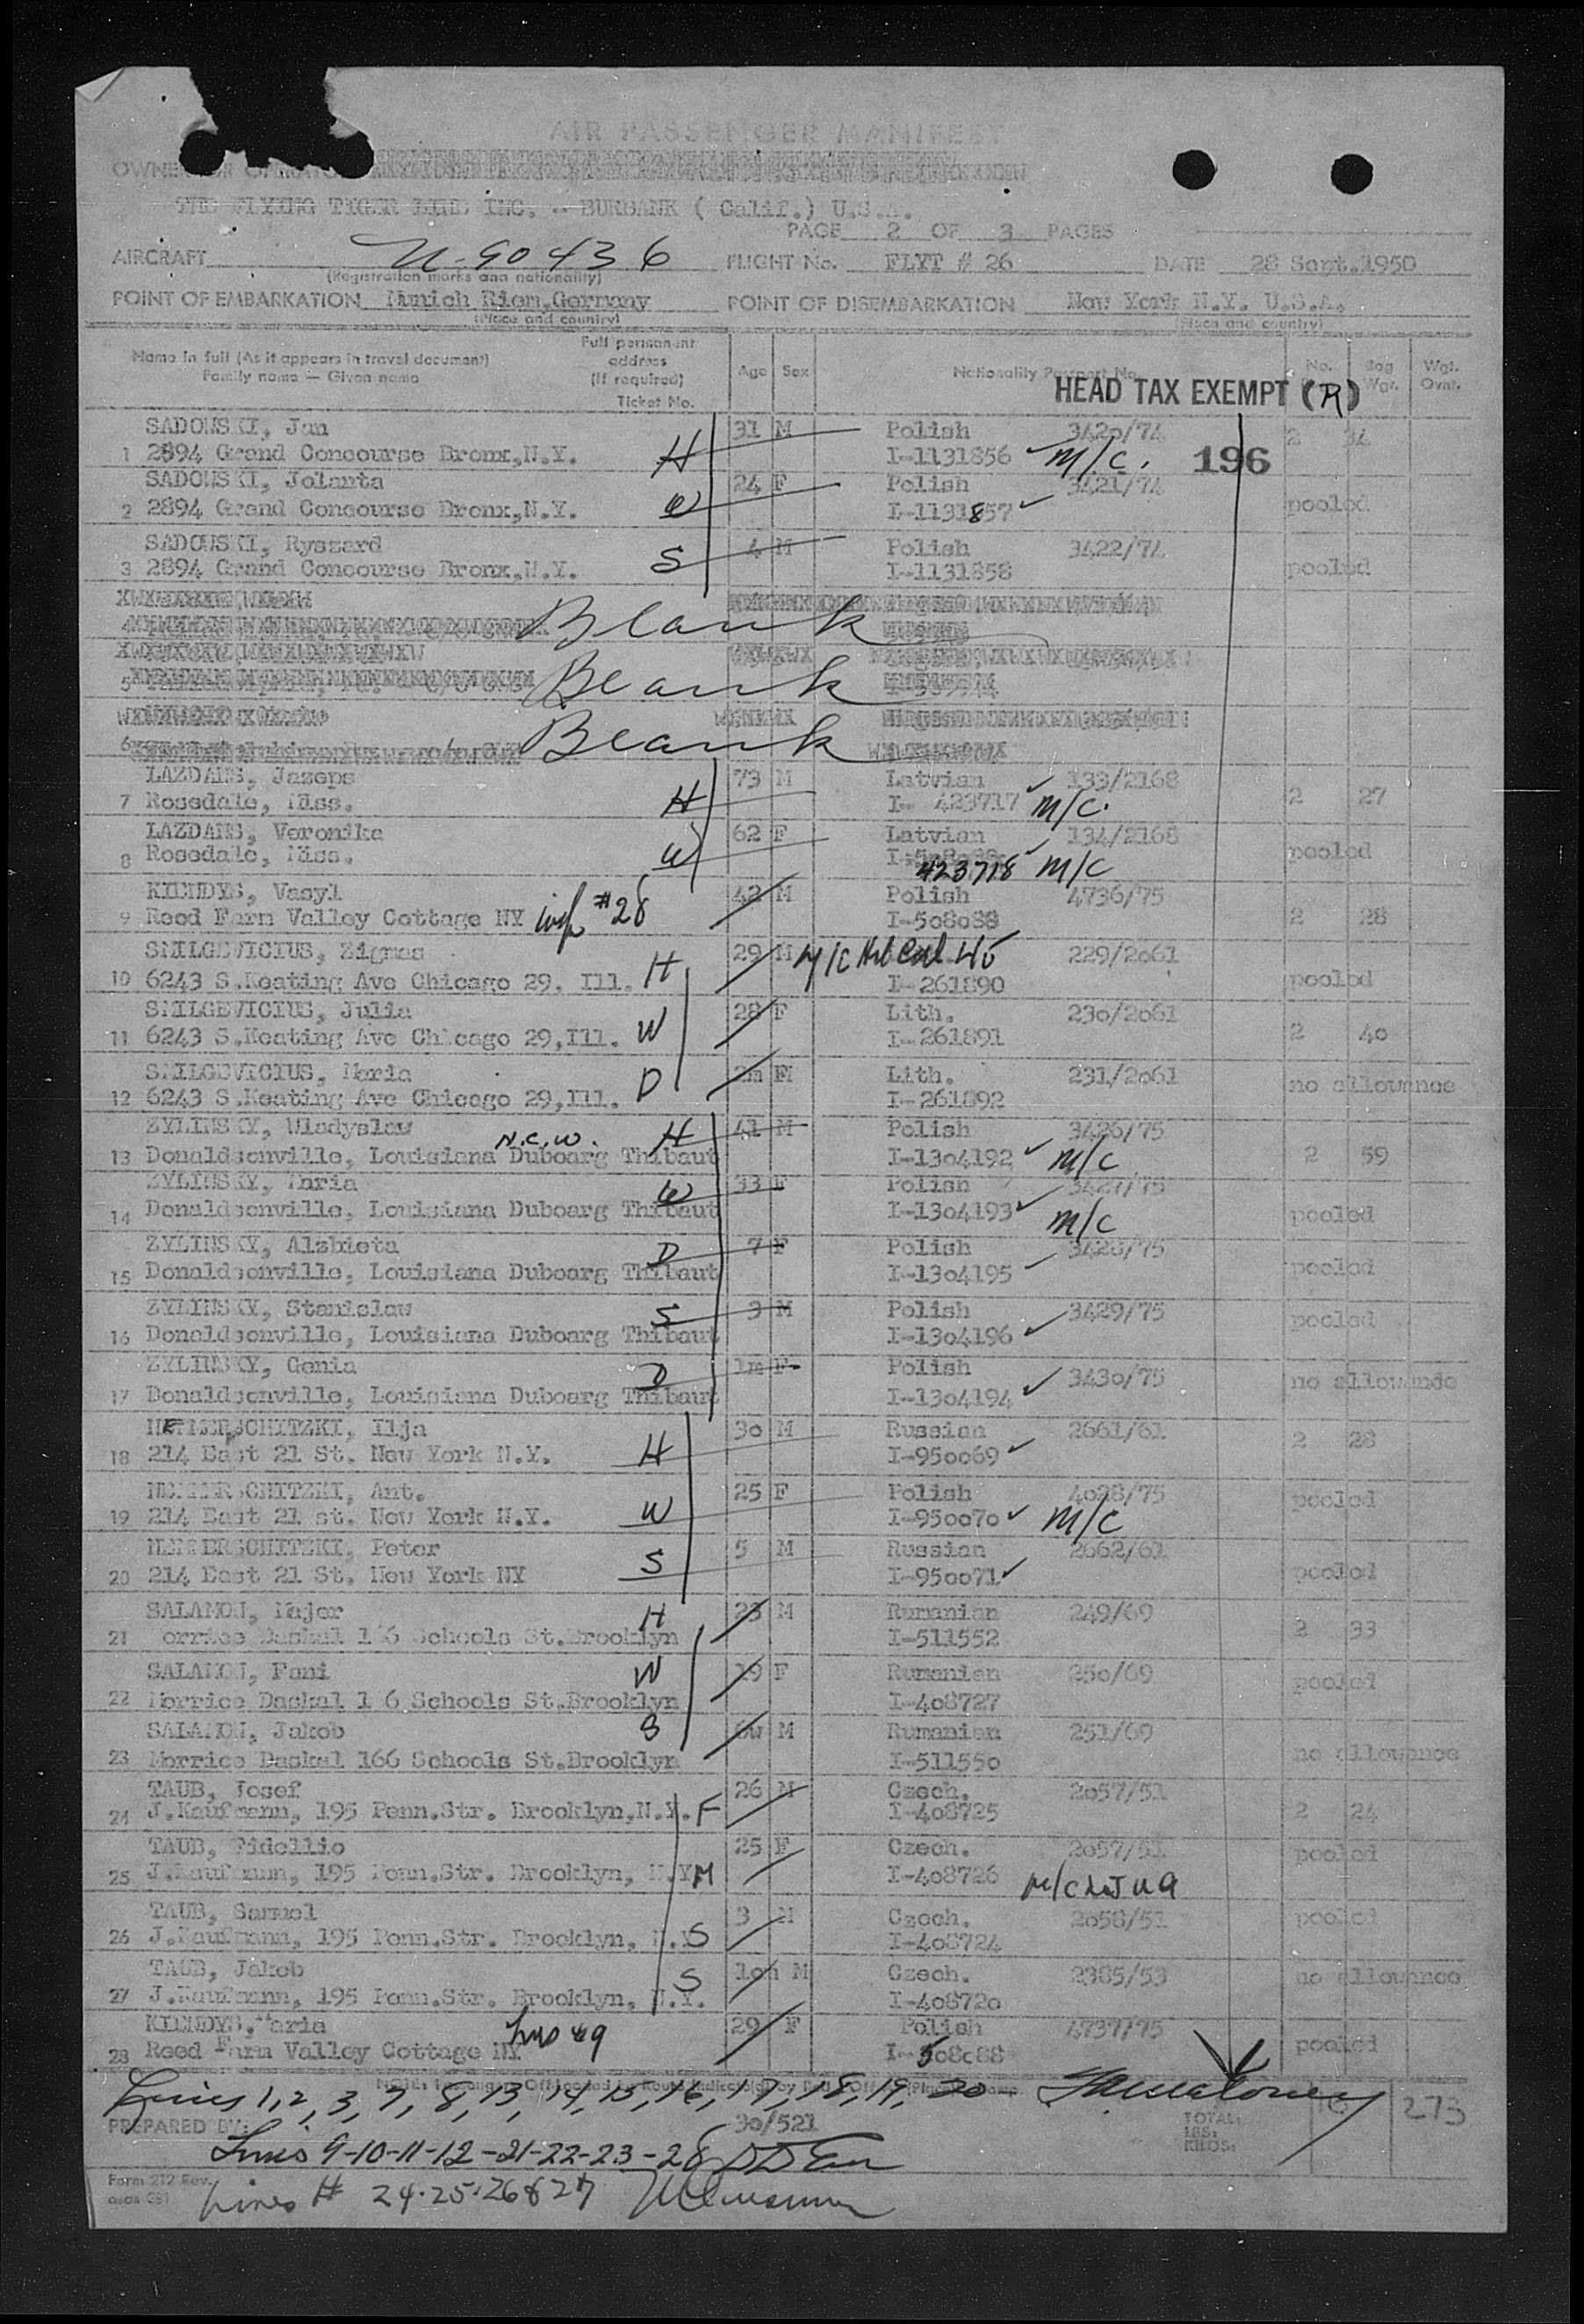 AIR PASSENGER MANIFEST
OWNER OR OPERATOR
THE FLYING TIGER LINE INC. -- BURBANK ( Calif.) U.S.A.
PAGE 2 OF 3 PAGES
AIRCRAFT N-90436 FLIGHT No. FLYT # 26 DATE 28 Sept.1950
(Registration marks and nationality)
POINT OF EMBARKATION Munich Riem,Germany POINT OF DISEMBARKATION New York N.Y. U.S.A.
(Place and country) (Place and country)
Name in full (As it appears in travel document)
Family name — Given name
Full permanent address (If required) Ticket No.
Age Sex Nationality Passport No. No. Bag Wgt. Wgt. Ovnt.
HEAD TAX EXEMPT (R)
196
SADOWSKI, Jan 31 M Polish 3420/74
1 2894 Grand Concourse Bronx,N.Y. H I-1131856 M/C. 2 34
SADOWSKI, Jolanta 24 F Polish 3421/74
2 2894 Grand Concourse Bronx,N.Y. W I-1131857 pooled
SADOWSKI, Ryszard 4 M Polish 3422/74
3 2894 Grand Concourse Bronx,N.Y. S I-1131858 pooled
4 Blank
5 Blank
6 Blank
LAZDANS, Jazeps 73 M Latvian 133/2168
7 Rosedale, Miss. H I- 423717 M/C. 2 27
LAZDANS, Veronika 62 F Latvian 134/2168
8 Rosedale, Miss. W 423718 M/C pooled
KIENDYS, Vasyl 42 M Polish 4736/75
9 Reed Farm Valley Cottage NY w/ #28 I-508088 2 28
SMILGEVICIUS, Zigmas 29 M M/C 229/2061
10 6243 S.Keating Ave Chicago 29. Ill. H I-261890 pooled
SMILGEVICIUS, Julia 28 F Lith. 230/2061
11 6243 S.Keating Ave Chicago 29,Ill. W I-261891 2 40
SMILGEVICIUS, Maria 2m F Lith. 231/2061
12 6243 S.Keating Ave Chicago 29,Ill. D I-261892 no allowance
ZYLINSKY, Wladyslaw N.C.W. H 41 M Polish 3426/75
13 Donaldsonville, Louisiana Duboarg Thibaut I-1304192 M/C 2 59
ZYLINSKY, Maria W 33 F Polish 3427/75
14 Donaldsonville, Louisiana Duboarg Thibaut I-1304193 M/C pooled
ZYLINSKY, Alzbieta D 7 F Polish 3428/75
15 Donaldsonville, Louisiana Duboarg Thibaut I-1304195 pooled
ZYLINSKY, Stanislaw S 3 M Polish 3429/75
16 Donaldsonville, Louisiana Duboarg Thibaut I-1304196 pooled
ZYLINSKY, Genia D 1m F Polish 3430/75
17 Donaldsonville, Louisiana Duboarg Thibaut I-1304194 no allowance
NEMERSCHITZKI, Ilja 30 M Russian 2661/61
18 214 East 21 St. New York N.Y. H I-950069 2 28
NEMERSCHITZKI, Ant. 25 F Polish 4098/75
19 214 East 21 st. New York N.Y. W I-950070 M/C pooled
NEMERSCHITZKI, Peter 5 M Russian 2662/61
20 214 East 21 St. New York NY S I-950071 pooled
SALAMON, Major H 23 M Rumanian 249/69
21 orrice Daskal 1 6 Schools St.Brooklyn I-511552 2 33
SALAMON, Fani W 19 F Rumanian 250/69
22 Morrice Daskal 1 6 Schools St.Brooklyn I-408727 pooled
SALAMON, Jakob S 6w M Rumanian 251/69
23 Morrice Daskal 166 Schools St.Brooklyn I-511550 no allowance
TAUB, Josef 26 M Czech. 2057/51
24 J.Kaufmann, 195 Penn.Str. Brooklyn,N.Y. F I-408725 2 24
TAUB, Fidellio 25 F Czech. 2057/51
25 J.Kaufmann, 195 Penn.Str. Brooklyn, N.Y. M I-408726 M/C pooled
TAUB, Samuel 3 M Czech. 2058/51
26 J.Kaufmann, 195 Penn.Str. Brooklyn, N.Y. S I-408724 pooled
TAUB, Jakob 10m M Czech. 2385/53
27 J.Kaufmann, 195 Penn.Str. Brooklyn, N.Y. S I-408720 no allowance
KIENDYS, Maria 29 F Polish 4737/75
28 Reed Farm Valley Cottage NY Line #9 I-508088 pooled
Lines 1, 2, 3, 7, 8, 13, 14, 15, 16, 17, 18, 19, 20
PREPARED BY: 30/521 TOTAL: LBS: KILOS: 16 273
Lines 9-10-11-12-21-22-23-28
Form 212 Rev.
Lines # 24-25-26 & 27